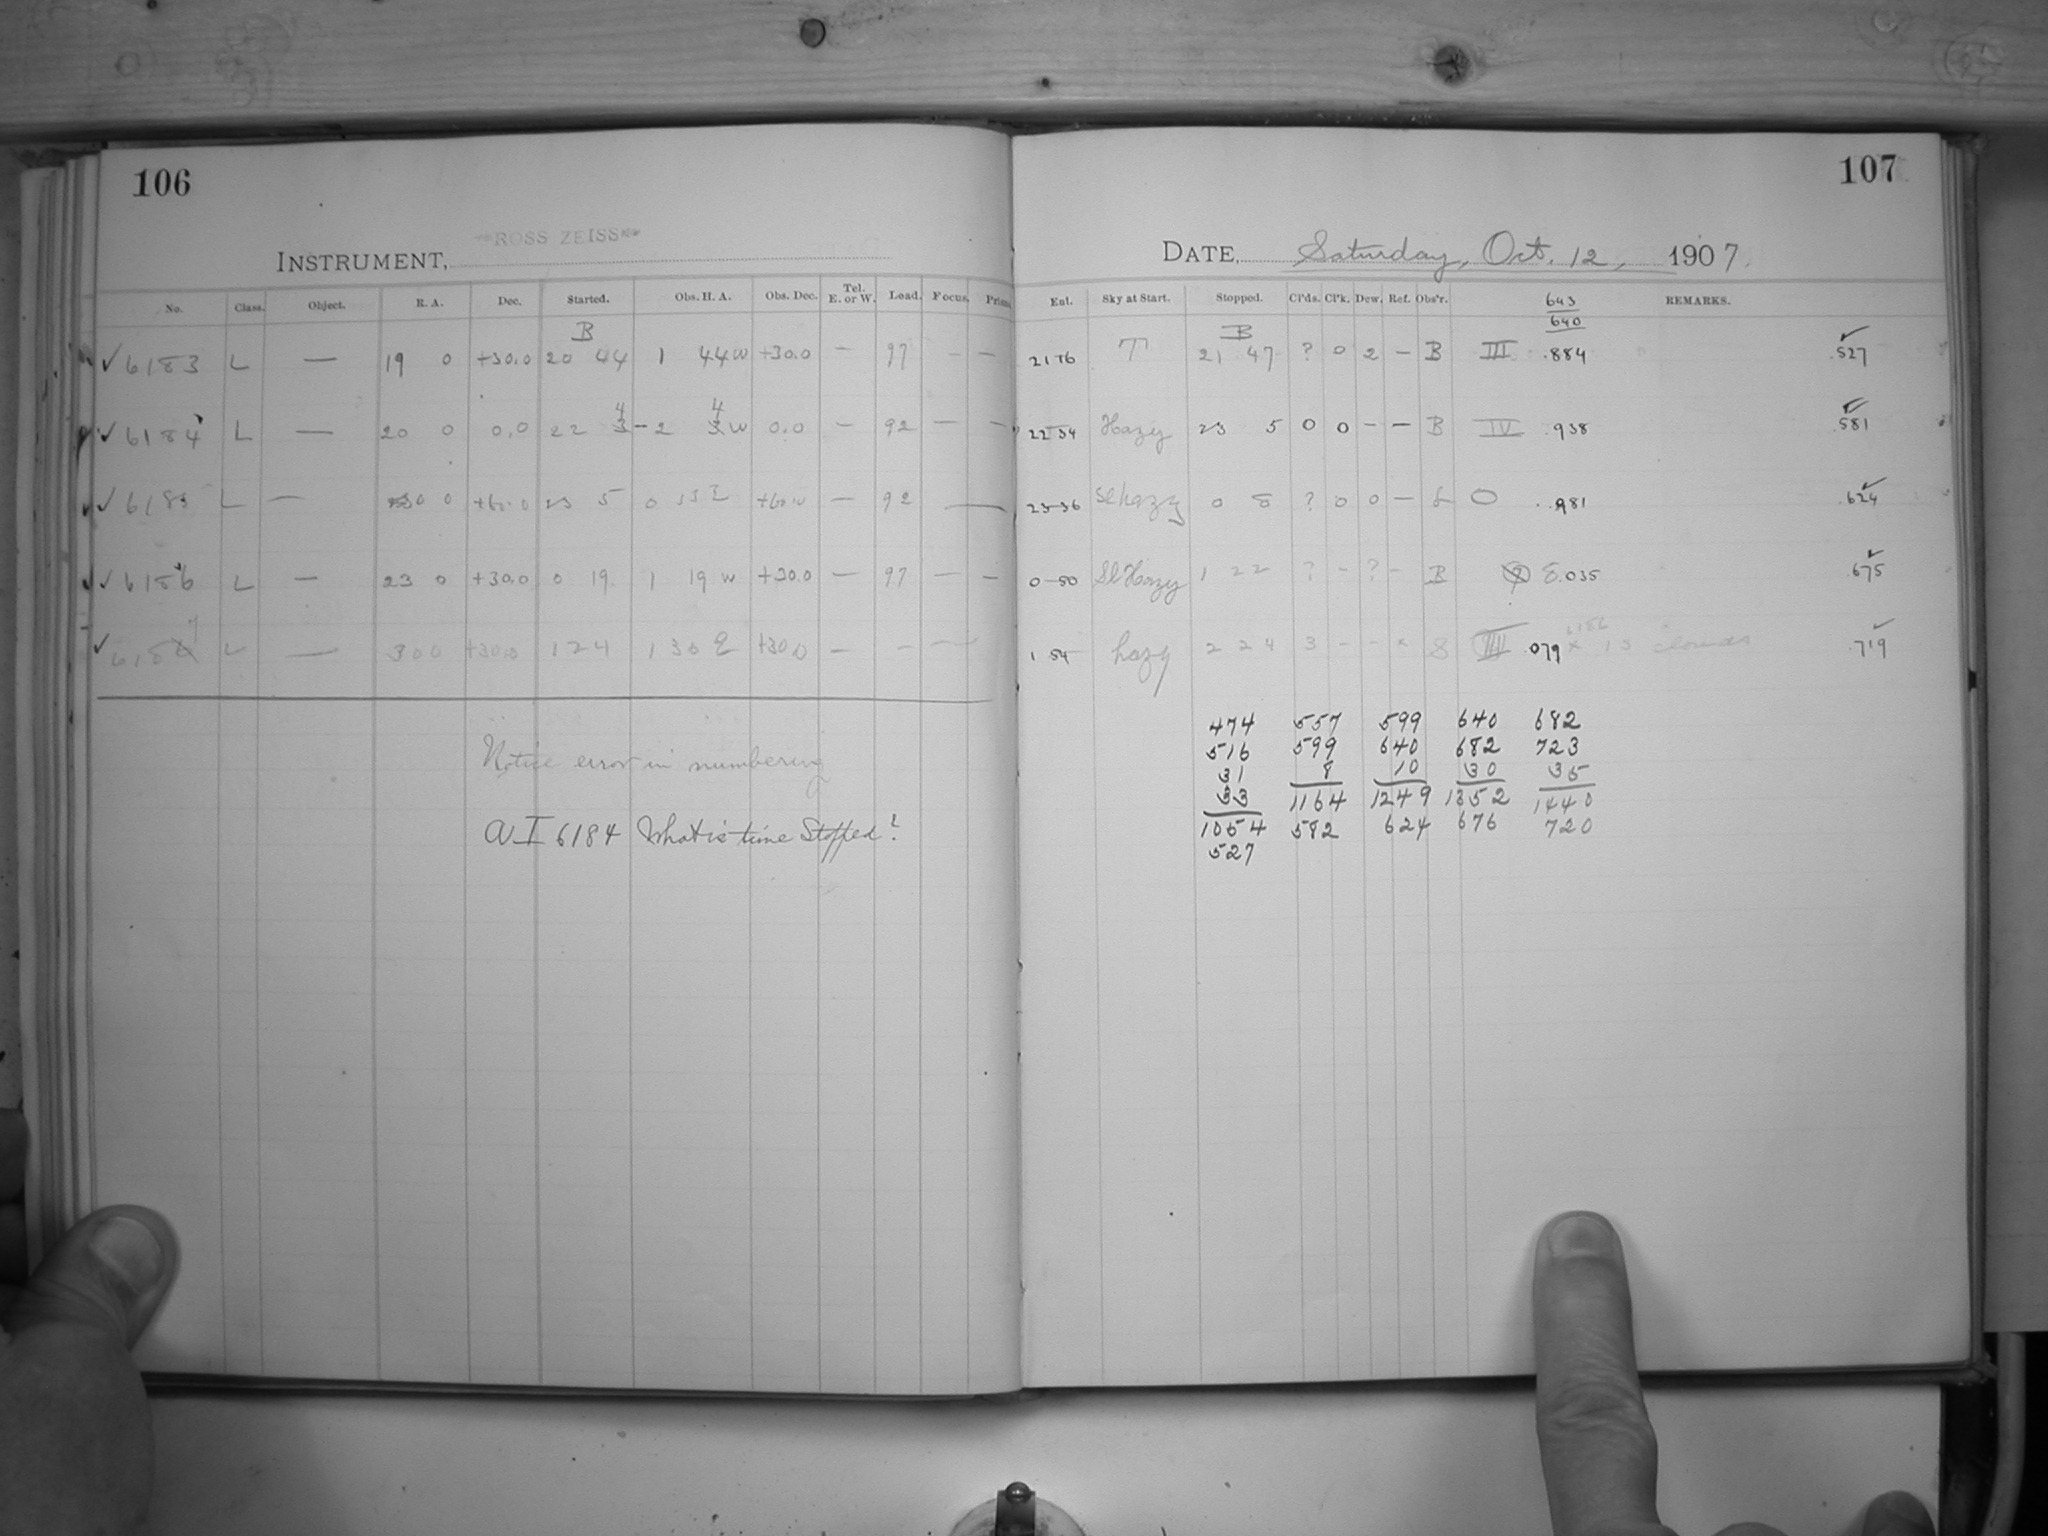 106
107
ROSS ZEISS
INSTRUMENT,
DATE, Saturday, Oct. 12, 1907.
No. Class. Object. R. A. Dec. Started. Obs. H. A. Obs. Dec. Tel. E. or W. Load. Focus. Prism. Ent. Sky at Start. Stopped. Cl'ds. Cl'k. Dew. Ref. Obs'r. REMARKS.
643
640
B B
✓ 6183 L — 19 0 +30.0 20 44 1 44 W +30.0 — 97 — — 21 16 21 47 ? 0 2 — B III .884 .527
✓ 6184 L — 20 0 0.0 22 3 4 — 2 3 4 W 0.0 — 92 — — 22 34 Hazy 23 5 0 0 — — B IV .938 .581
✓ 6185 L — 0 0 +60.0 23 5 0 55 E +60.0 — 92 — 23 36 Sl hazy 0 8 ? 0 0 — 0 .981 .624
✓ 6186 L — 23 0 +30.0 0 19 1 19 W +30.0 — 97 — — 0 50 Sl Hazy 1 22 ? - ? - B 8.035 .675
✓ 618 7 L — 3 0 0 +30.0 1 24 1 36 E +30.0 — - — 1 54 hazy 2 24 3 - - S III .079 6186 x 13 clouds .719
474 557 599 640 682
516 599 640 682 723
31 8 10 30 35
33 1164 1249 1352 1440
1054 582 624 676 720
527
Notice error in numbering
6184 What is time Stopped?